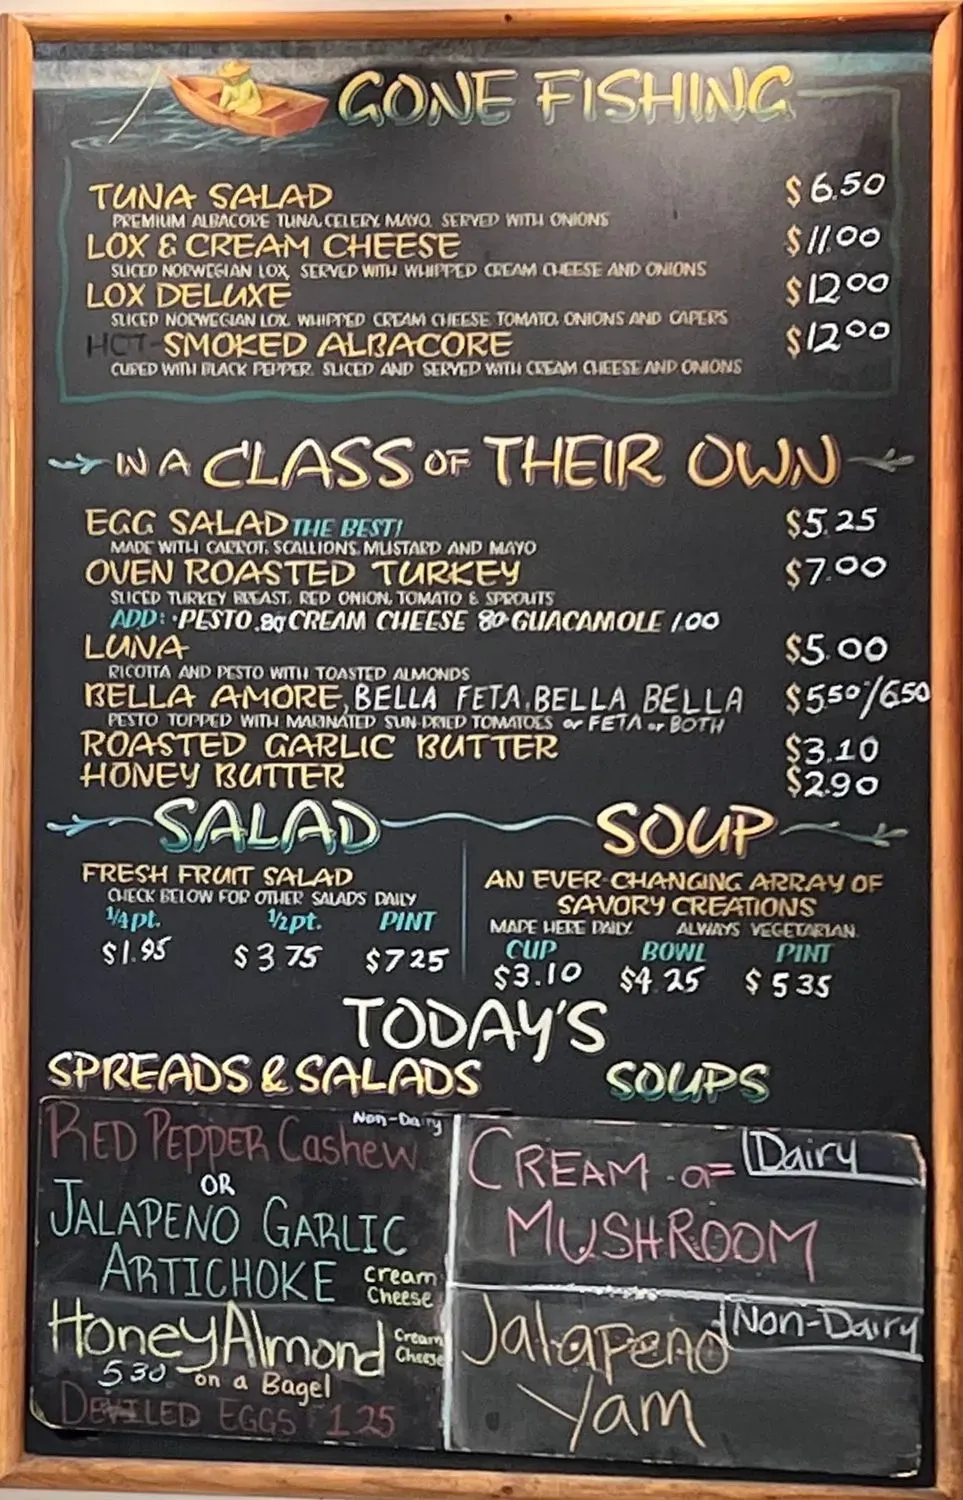 GONE FISHING
TUNA SALAD $6.50
PREMIUM ALBACORE TUNA, CELERY, MAYO. SERVED WITH ONIONS
LOX & CREAM CHEESE $11.00
SLICED NORWEGIAN LOX, SERVED WITH WHIPPED CREAM CHEESE AND ONIONS
LOX DELUXE $12.00
SLICED NORWEGIAN LOX, WHIPPED CREAM CHEESE, TOMATO, ONIONS AND CAPERS
HOT-SMOKED ALBACORE $12.00
CURED WITH BLACK PEPPER, SLICED AND SERVED WITH CREAM CHEESE AND ONIONS
IN A CLASS OF THEIR OWN
EGG SALAD THE BEST! $5.25
MADE WITH CARROT, SCALLIONS, MUSTARD AND MAYO
OVEN ROASTED TURKEY $7.00
SLICED TURKEY BREAST, RED ONION, TOMATO & SPROUTS
ADD: PESTO .80 CREAM CHEESE 80 GUACAMOLE 1.00
LUNA $5.00
RICOTTA AND PESTO WITH TOASTED ALMONDS
BELLA AMORE, BELLA FETA, BELLA BELLA $5.50/6.50
PESTO TOPPED WITH MARINATED SUN-DRIED TOMATOES or FETA or BOTH
ROASTED GARLIC BUTTER $3.10
HONEY BUTTER $2.90
SALAD
FRESH FRUIT SALAD
CHECK BELOW FOR OTHER SALADS DAILY
1/4 pt. 1/2 pt. PINT
$1.95 $3.75 $7.25
SOUP
AN EVER-CHANGING ARRAY OF
SAVORY CREATIONS
MADE HERE DAILY ALWAYS VEGETARIAN
CUP BOWL PINT
$3.10 $4.25 $5.35
TODAY'S
SPREADS & SALADS
Non-Dairy
RED PEPPER Cashew
OR
JALAPENO GARLIC
ARTICHOKE cream
Cheese
Honey Almond Cream
Cheese
5.30 on a Bagel
DEVILED EGGS 1.25
SOUPS
CREAM OF Dairy
MUSHROOM
Jalapeno Non-Dairy
Yam